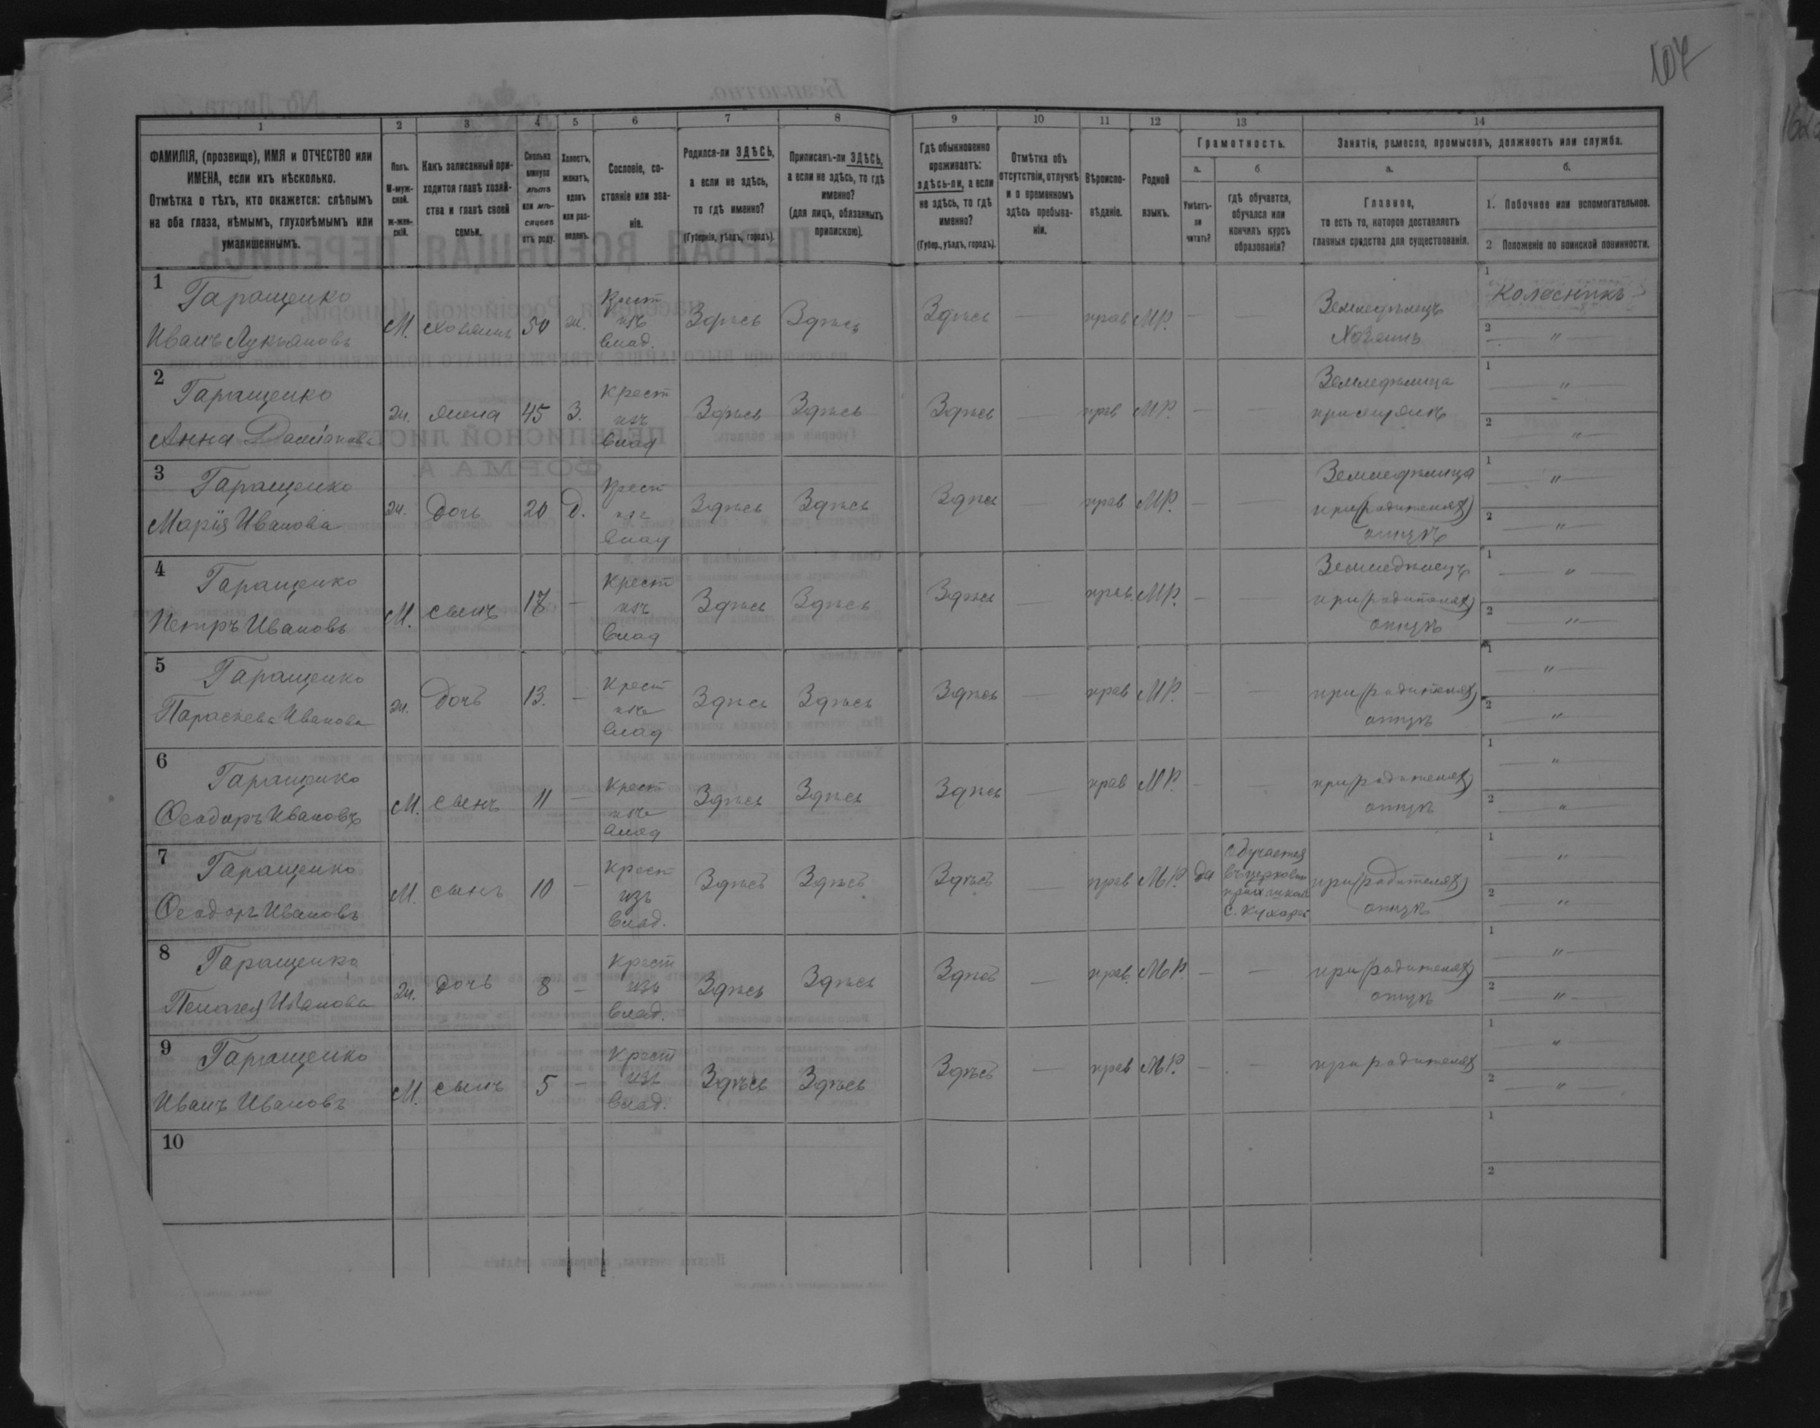 107
1 2 3 4 5 6 7 8 9 10 11 12 13 14
ФАМИЛІЯ, (прозвище), ИМЯ и ОТЧЕСТВО или
ИМЕНА, если ихъ нѣсколько.
Отмѣтка о тѣхъ, кто окажется: слѣпымъ
на оба глаза, нѣмымъ, глухонѣмымъ или
умалишеннымъ.
Полъ.
М-муж-
ской.
Ж-жен-
скій.
Какъ записанный при-
ходится главѣ хозяй-
ства и главѣ своей
семьи.
Сколько
минуло
лѣтъ
или мѣ-
сяцевъ
отъ роду.
Холостъ,
женатъ,
вдовъ
или раз-
веденъ.
Сословіе, со-
стояніе или зва-
ніе.
Родился-ли ЗДѢСЬ,
а если не здѣсь,
то гдѣ именно?
(Губернія, уѣздъ, городъ).
Приписанъ-ли ЗДѢСЬ,
а если не здѣсь, то гдѣ
именно?
(для лицъ, обязанныхъ
припискою).
Гдѣ обыкновенно
проживаетъ:
здѣсь-ли, а если
не здѣсь, то гдѣ
именно?
(Губер., уѣздъ, городъ).
Отмѣтка объ
отсутствіи, отлучкѣ
и о временномъ
здѣсь пребыва-
ніи.
Вѣроиспо-
вѣданіе.
Родной
языкъ.
Грамотность.
а. б
Умѣетъ-
ли
читать?
гдѣ обучается,
обучался или
кончилъ курсъ
образованія?
Занятіе, ремесло, промыселъ, должность или служба.
а. б.
Главное,
то есть то, которое доставляетъ
главныя средства для существованія.
1. Побочное или вспомогательное.
2 Положеніе по воинской повинности.
1 Гаращенко
Иванъ Лукьяновъ
М. хозяинъ 50 ж. Крест изъ влад. Здѣсь Здѣсь Здѣсь — прав МР. — — Земледѣлецъ
Хозяинъ
1 Колесникъ
2 "
2 Гаращенко
Анна Даміанова
Ж. жена 45 З. Крест изъ влад Здѣсь Здѣсь Здѣсь — прав МР. — — Земледѣлица
при мужѣ
1 "
2 "
3 Гаращенко
Марія Иванова
Ж. дочь 20 д. Крест изъ влад Здѣсь Здѣсь Здѣсь — прав МР. — — Земледѣлица
при (родителях)
отцѣ
1 "
2 "
4 Гаращенко
Петръ Ивановъ
М. сынъ 17 — Крест изъ влад Здѣсь Здѣсь Здѣсь — прав. МР. — — Земледѣлецъ
при (родителях)
отцѣ
1 "
2 "
5 Гаращенко
Параскева Иванова
Ж. дочь 13. — Крест изъ влад Здѣсь Здѣсь Здѣсь — прав МР. — — при (родителях)
отцѣ
1 "
2 "
6 Гаращенко
Ѳеодоръ Ивановъ
М. сынъ 11 — Крест изъ влад Здѣсь Здѣсь Здѣсь — прав МР. — — при (родителях)
отцѣ
1 "
2 "
7 Гаращенко
Ѳеодоръ Ивановъ
М. сынъ 10 — Крест изъ влад. Здѣсь Здѣсь Здѣсь — прав МР. да обучается
въ церковно
с. Кухари
при (родителях)
отцѣ
1 "
2 "
8 Гаращенко
Пелагея Иванова
Ж. дочь 8 — Крест изъ влад. Здѣсь Здѣсь Здѣсь — прав. МР — — при (родителях)
отцѣ
1 "
2 "
9 Гаращенко
Иванъ Ивановъ
М. сынъ 5 — Крест изъ влад. Здѣсь Здѣсь Здѣсь — прав МР. — — при родителях
1 "
2 "
10
1
2